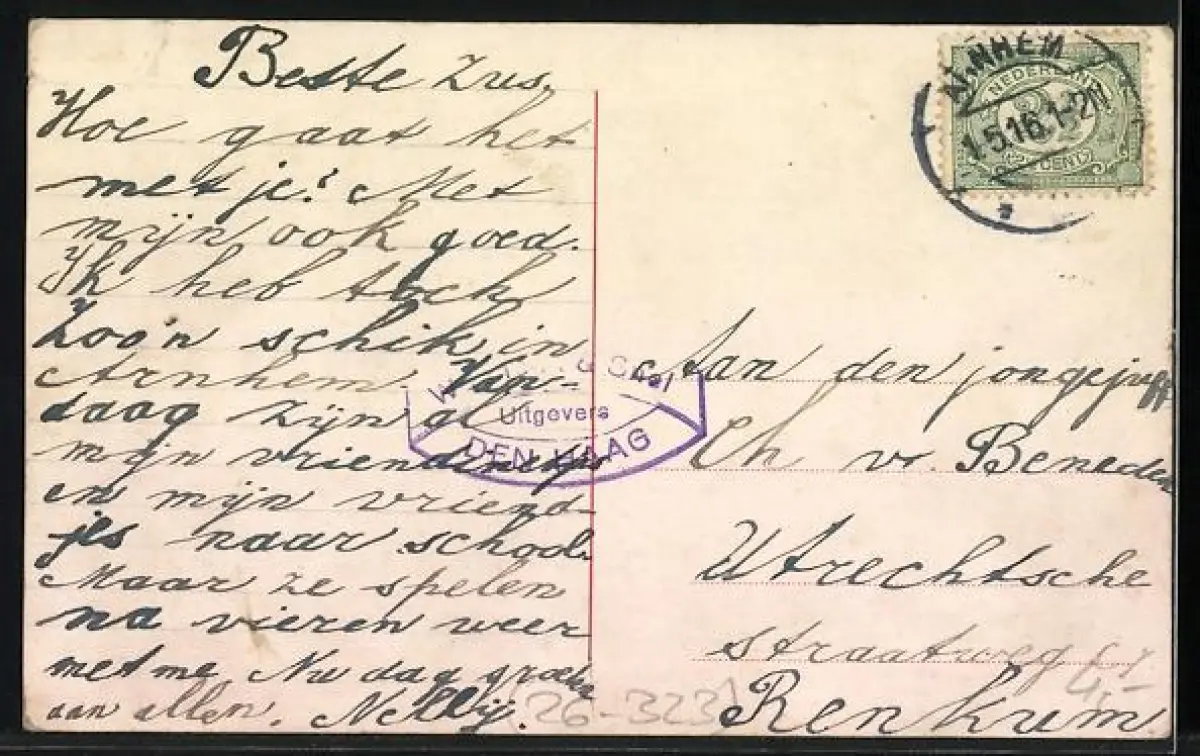 Beste Zus.
Hoe gaat het
met je? Met
mijn ook goed.
Ik heb toch
Zoo'n schik in
Arnhem. Van-
daag zijn al
mijn vriendinnetjes
en mijn vriend-
jes naar school.
Maar ze spelen
na vieren weer
met me. Nu dag groeten
aan allen. Nellij.
ARNHEM
1.5.16.1-2N
NEDERLAND
2½ CENT
Uitgevers
DEN HAAG
Aan den jongejuff
Ch v. Beneden
Utrechtsche
straatweg
Renkum
26-323